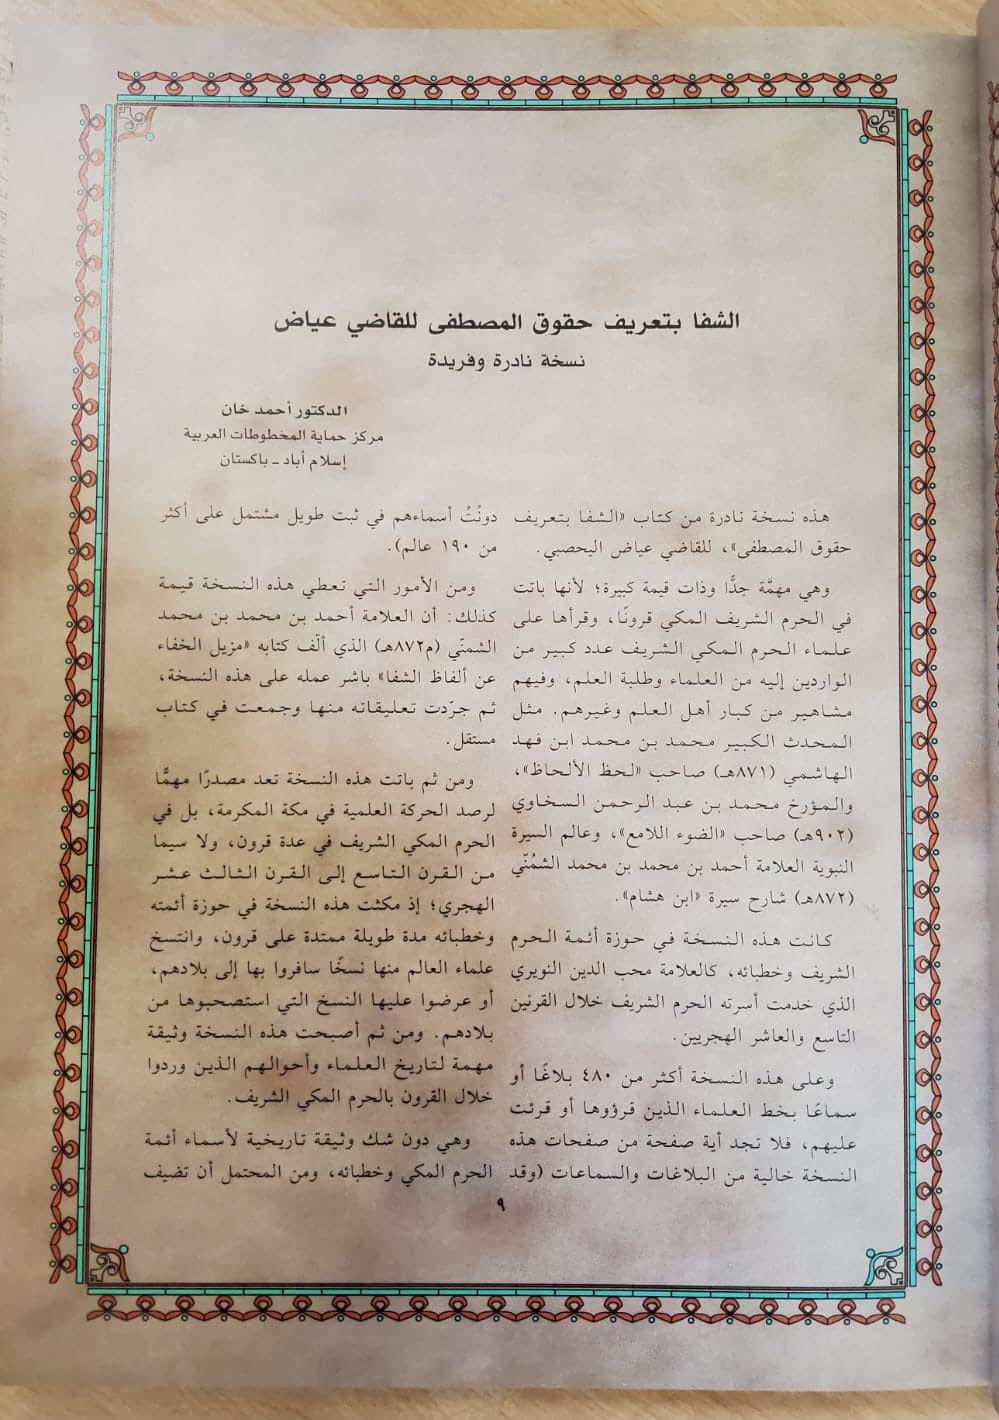 الشفا بتعريف حقوق المصطفى للقاضي عياض
نسخة نادرة وفريدة
الدكتور أحمد خان
مركز حماية المخطوطات العربية
إسلام أباد ـ باكستان
هذه نسخة نادرة من كتاب «الشفا بتعريف
حقوق المصطفى»، للقاضي عياض اليحصبي.
وهي مهمَّة جدًّا وذات قيمة كبيرة؛ لأنها باتت
في الحرم الشريف المكي قرونًا، وقرأها على
علماء الحرم المكي الشريف عدد كبير من
الواردين إليه من العلماء وطلبة العلم، وفيهم
مشاهير من كبار أهل العلم وغيرهم. مثل
المحدث الكبير محمد بن محمد ابن فهد
الهاشمي (٨٧١هـ) صاحب «لحظ الألحاظ»،
والمؤرخ محمد بن عبد الرحمن السخاوي
(٩٠٢هـ) صاحب «الضوء اللامع»، وعالم السيرة
النبوية العلامة أحمد بن محمد بن محمد الشمُنّي
(٨٧٢هـ) شارح سيرة «ابن هشام».
كانت هذه النسخة في حوزة أئمة الحرم
الشريف وخطبائه، كالعلامة محب الدين النويري
الذي خدمت أسرته الحرم الشريف خلال القرنين
التاسع والعاشر الهجريين.
وعلى هذه النسخة أكثر من ٤٨٠ بلاغًا أو
سماعًا بخط العلماء الذين قرؤوها أو قرئت
عليهم، فلا تجد أية صفحة من صفحات هذه
النسخة خالية من البلاغات والسماعات (وقد
دونْتُ أسماءهم في ثبت طويل مشتمل على أكثر
من ١٩٠ عالم).
ومن الأمور التي تعطي هذه النسخة قيمة
كذلك: أن العلامة أحمد بن محمد بن محمد
الشمنّي (م٨٧٢هـ) الذي ألّف كتابه «مزيل الخفاء
عن ألفاظ الشفا» باشر عمله على هذه النسخة،
ثم جرّدت تعليقاته منها وجمعت في كتاب
مستقل.
ومن ثم باتت هذه النسخة تعد مصدرًا مهمًّا
لرصد الحركة العلمية في مكة المكرمة، بل في
الحرم المكي الشريف في عدة قرون، ولا سيما
من القرن التاسع إلى القرن الثالث عشر
الهجري؛ إذ مكثت هذه النسخة في حوزة أئمته
وخطبائه مدة طويلة ممتدة على قرون، وانتسخ
علماء العالم منها نسخًا سافروا بها إلى بلادهم،
أو عرضوا عليها النسخ التي استصحبوها من
بلادهم. ومن ثم أصبحت هذه النسخة وثيقة
مهمة لتاريخ العلماء وأحوالهم الذين وردوا
خلال القرون بالحرم المكي الشريف.
وهي دون شك وثيقة تاريخية لأسماء أئمة
الحرم المكي وخطبائه، ومن المحتمل أن تضيف
٩